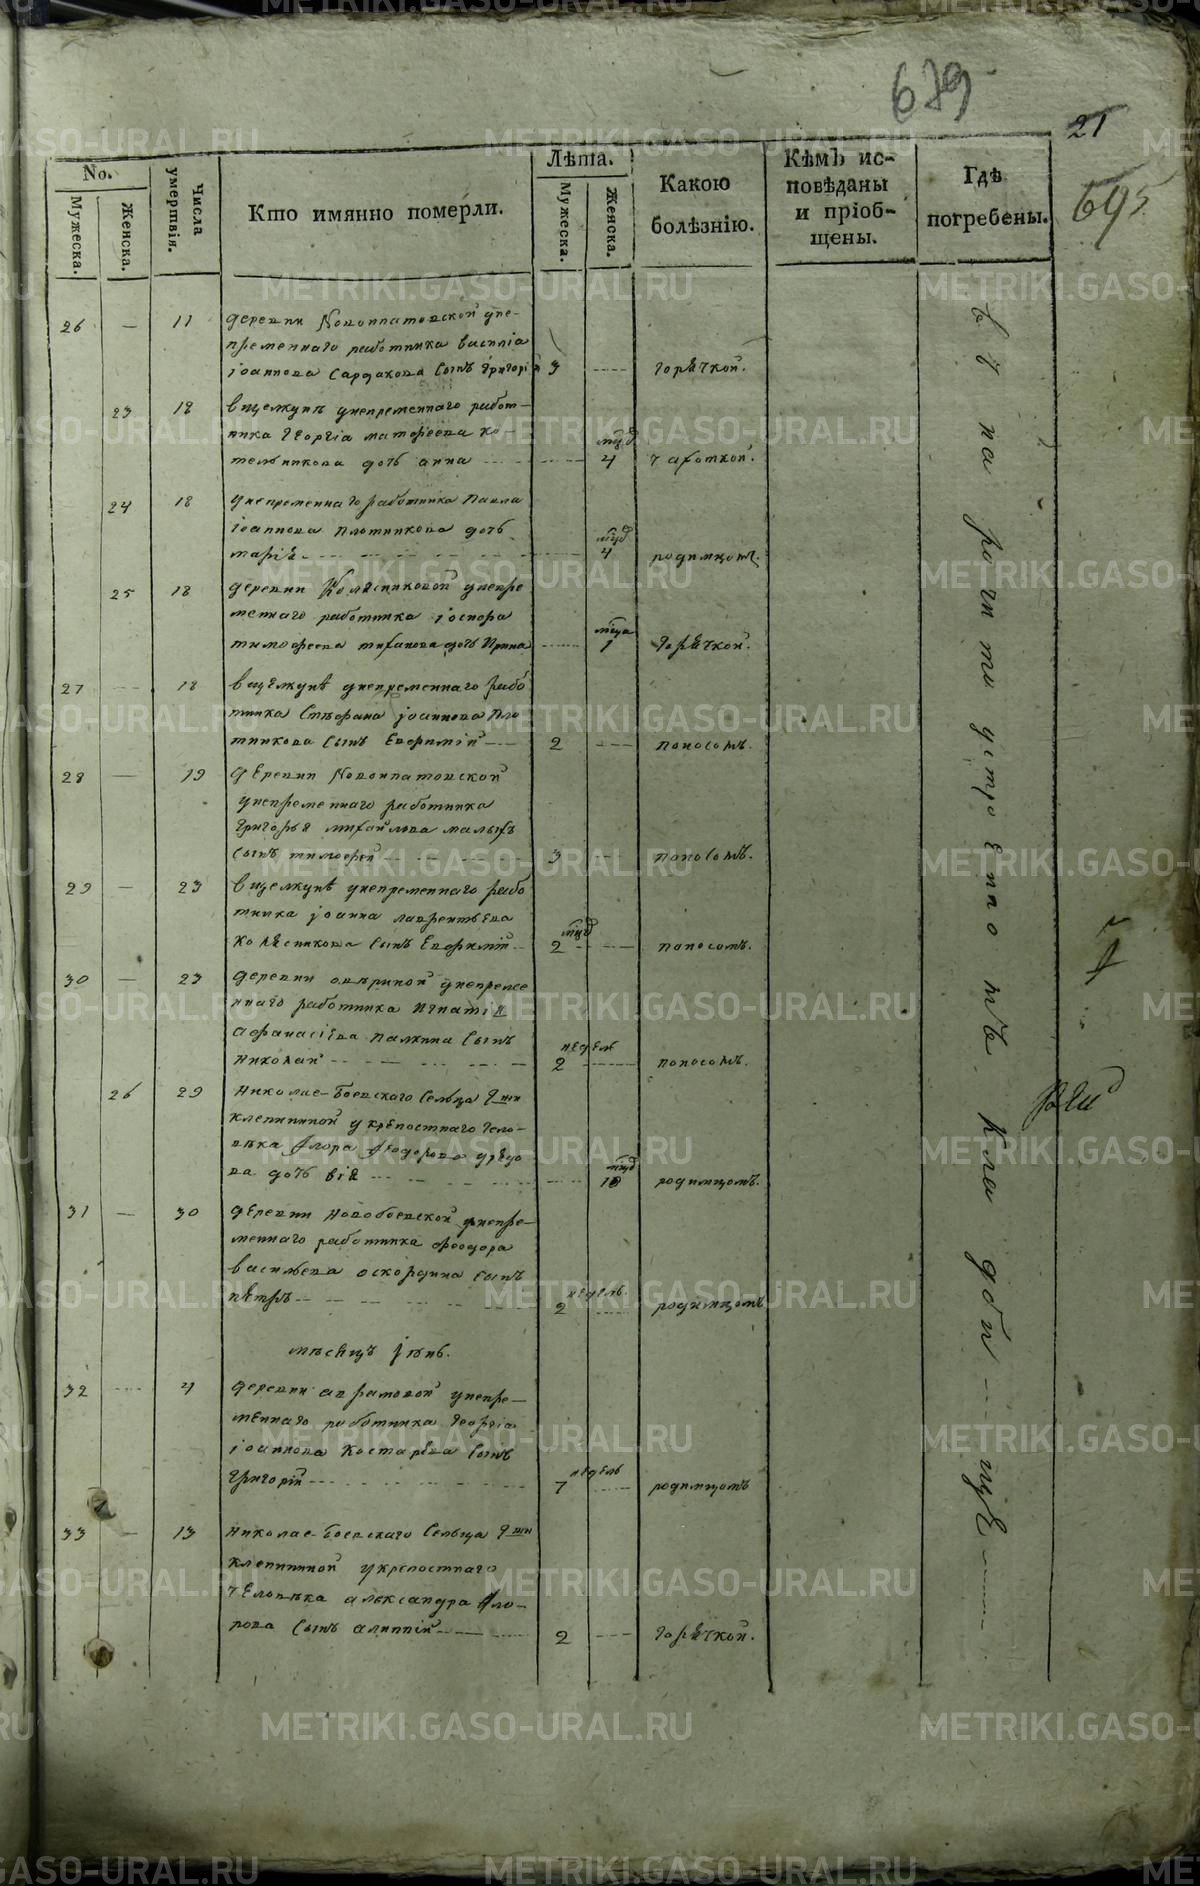 METRIKI.GASO-URAL.RU
679
21
695
No.
Мужеска.
Женска.
Числа умертвія.
Кто имянно померли.
Лѣта.
Мужеска.
Женска.
Какою болѣзнію.
Кѣмъ ис-
повѣданы
и пріоб-
щены.
Гдѣ
погребены.
26 — 11 деревни Новоипатовской уне-
пременнаго работника василіа
іоаннова Сардакова Сынъ Григорій 3 горѣчкой.
23 18 вщелкунѣ унепременнаго работ-
ника Георгіа матфеева ко-
тельникова дочь анна 4 чахоткой.
24 18 унепременнаго работника Павла
іоаннова Плотникова дочь
маріѧ 4 родимцомъ.
25 18 деревни Колѧсниковой унепре
меннаго работника іосифа
тимофеева дочь Ирина 1 Горѣчкой.
27 18 вщелкунѣ унепременнаго рабо
тника Стефана іоаннова Пло
тникова Сынъ Евфимій 2 поносомъ.
28 — 19 деревни Новоипатовской
унепременнаго работника
Григорьѧ михайлова малыхъ
Сынъ тимофей 3 поносомъ.
29 — 23 вщелкунѣ унепременнаго рабо
тника іоанна лаврентьева
Колѧсникова Сынъ Евфимій 2 поносомъ.
30 — 23 деревни унепреме
ннаго работника Игнатіѧ
афанасіева Палкина Сынъ
николай недель 2 поносомъ.
26 29 николае-Боевскаго Сельца Гжи
клепининой укрепостнаго чело-
века Флора Феодорова
дочь 10 родимцомъ.
31 — 30 деревни новобоевской унепре-
меннаго работника феодора
васильева оскордина Сынъ
пѣтръ недель. 2 родимцомъ
мѣсѧцъ Іюнь.
32 4 деревни аврамовой унепре-
меннаго работника Георгіа
іоаннова Костарева Сынъ
Григорій недель 7 родимцомъ
33 — 13 николае-Боевскаго Сельца Гжи
клепининой укрепостнаго
человѣка александра Фло-
рова Сынъ алиппій 2 Горѣчкой.
На кла дби - щѣ